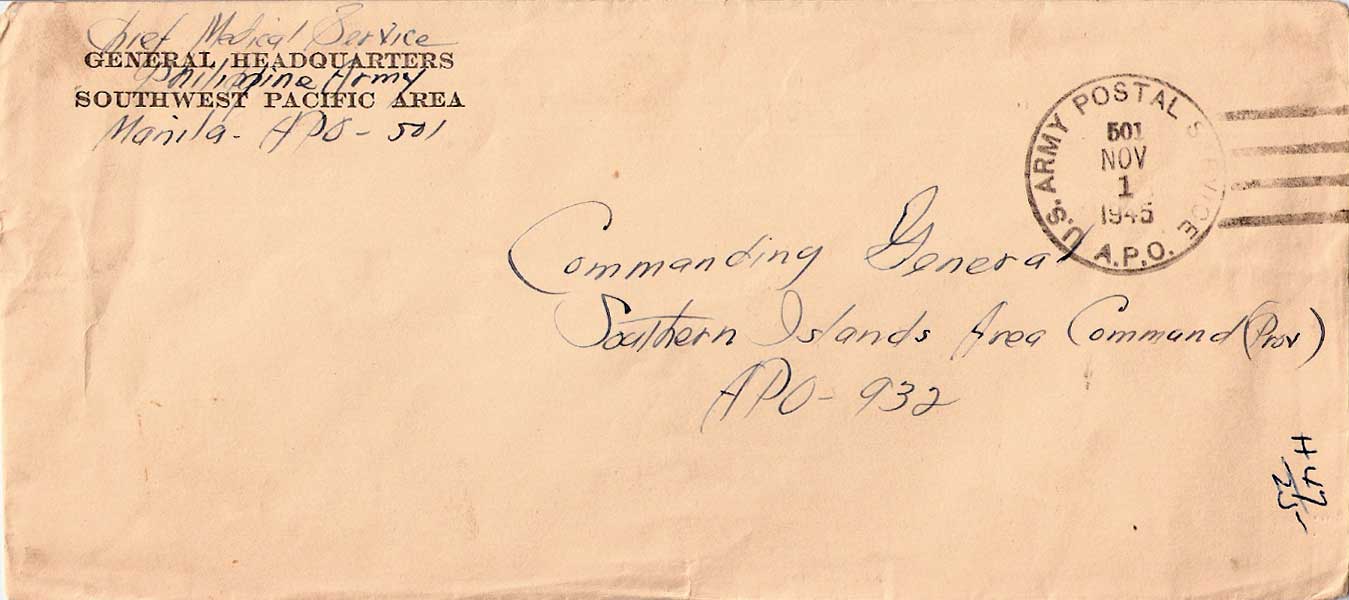 Chief Medical Service
GENERAL HEADQUARTERS
Philippine Army
SOUTHWEST PACIFIC AREA
Manila - APO - 501
U.S. ARMY POSTAL SERVICE
501
NOV
1
1945
A.P.O.
Commanding General
Southern Islands Area Command (Prov)
APO - 932